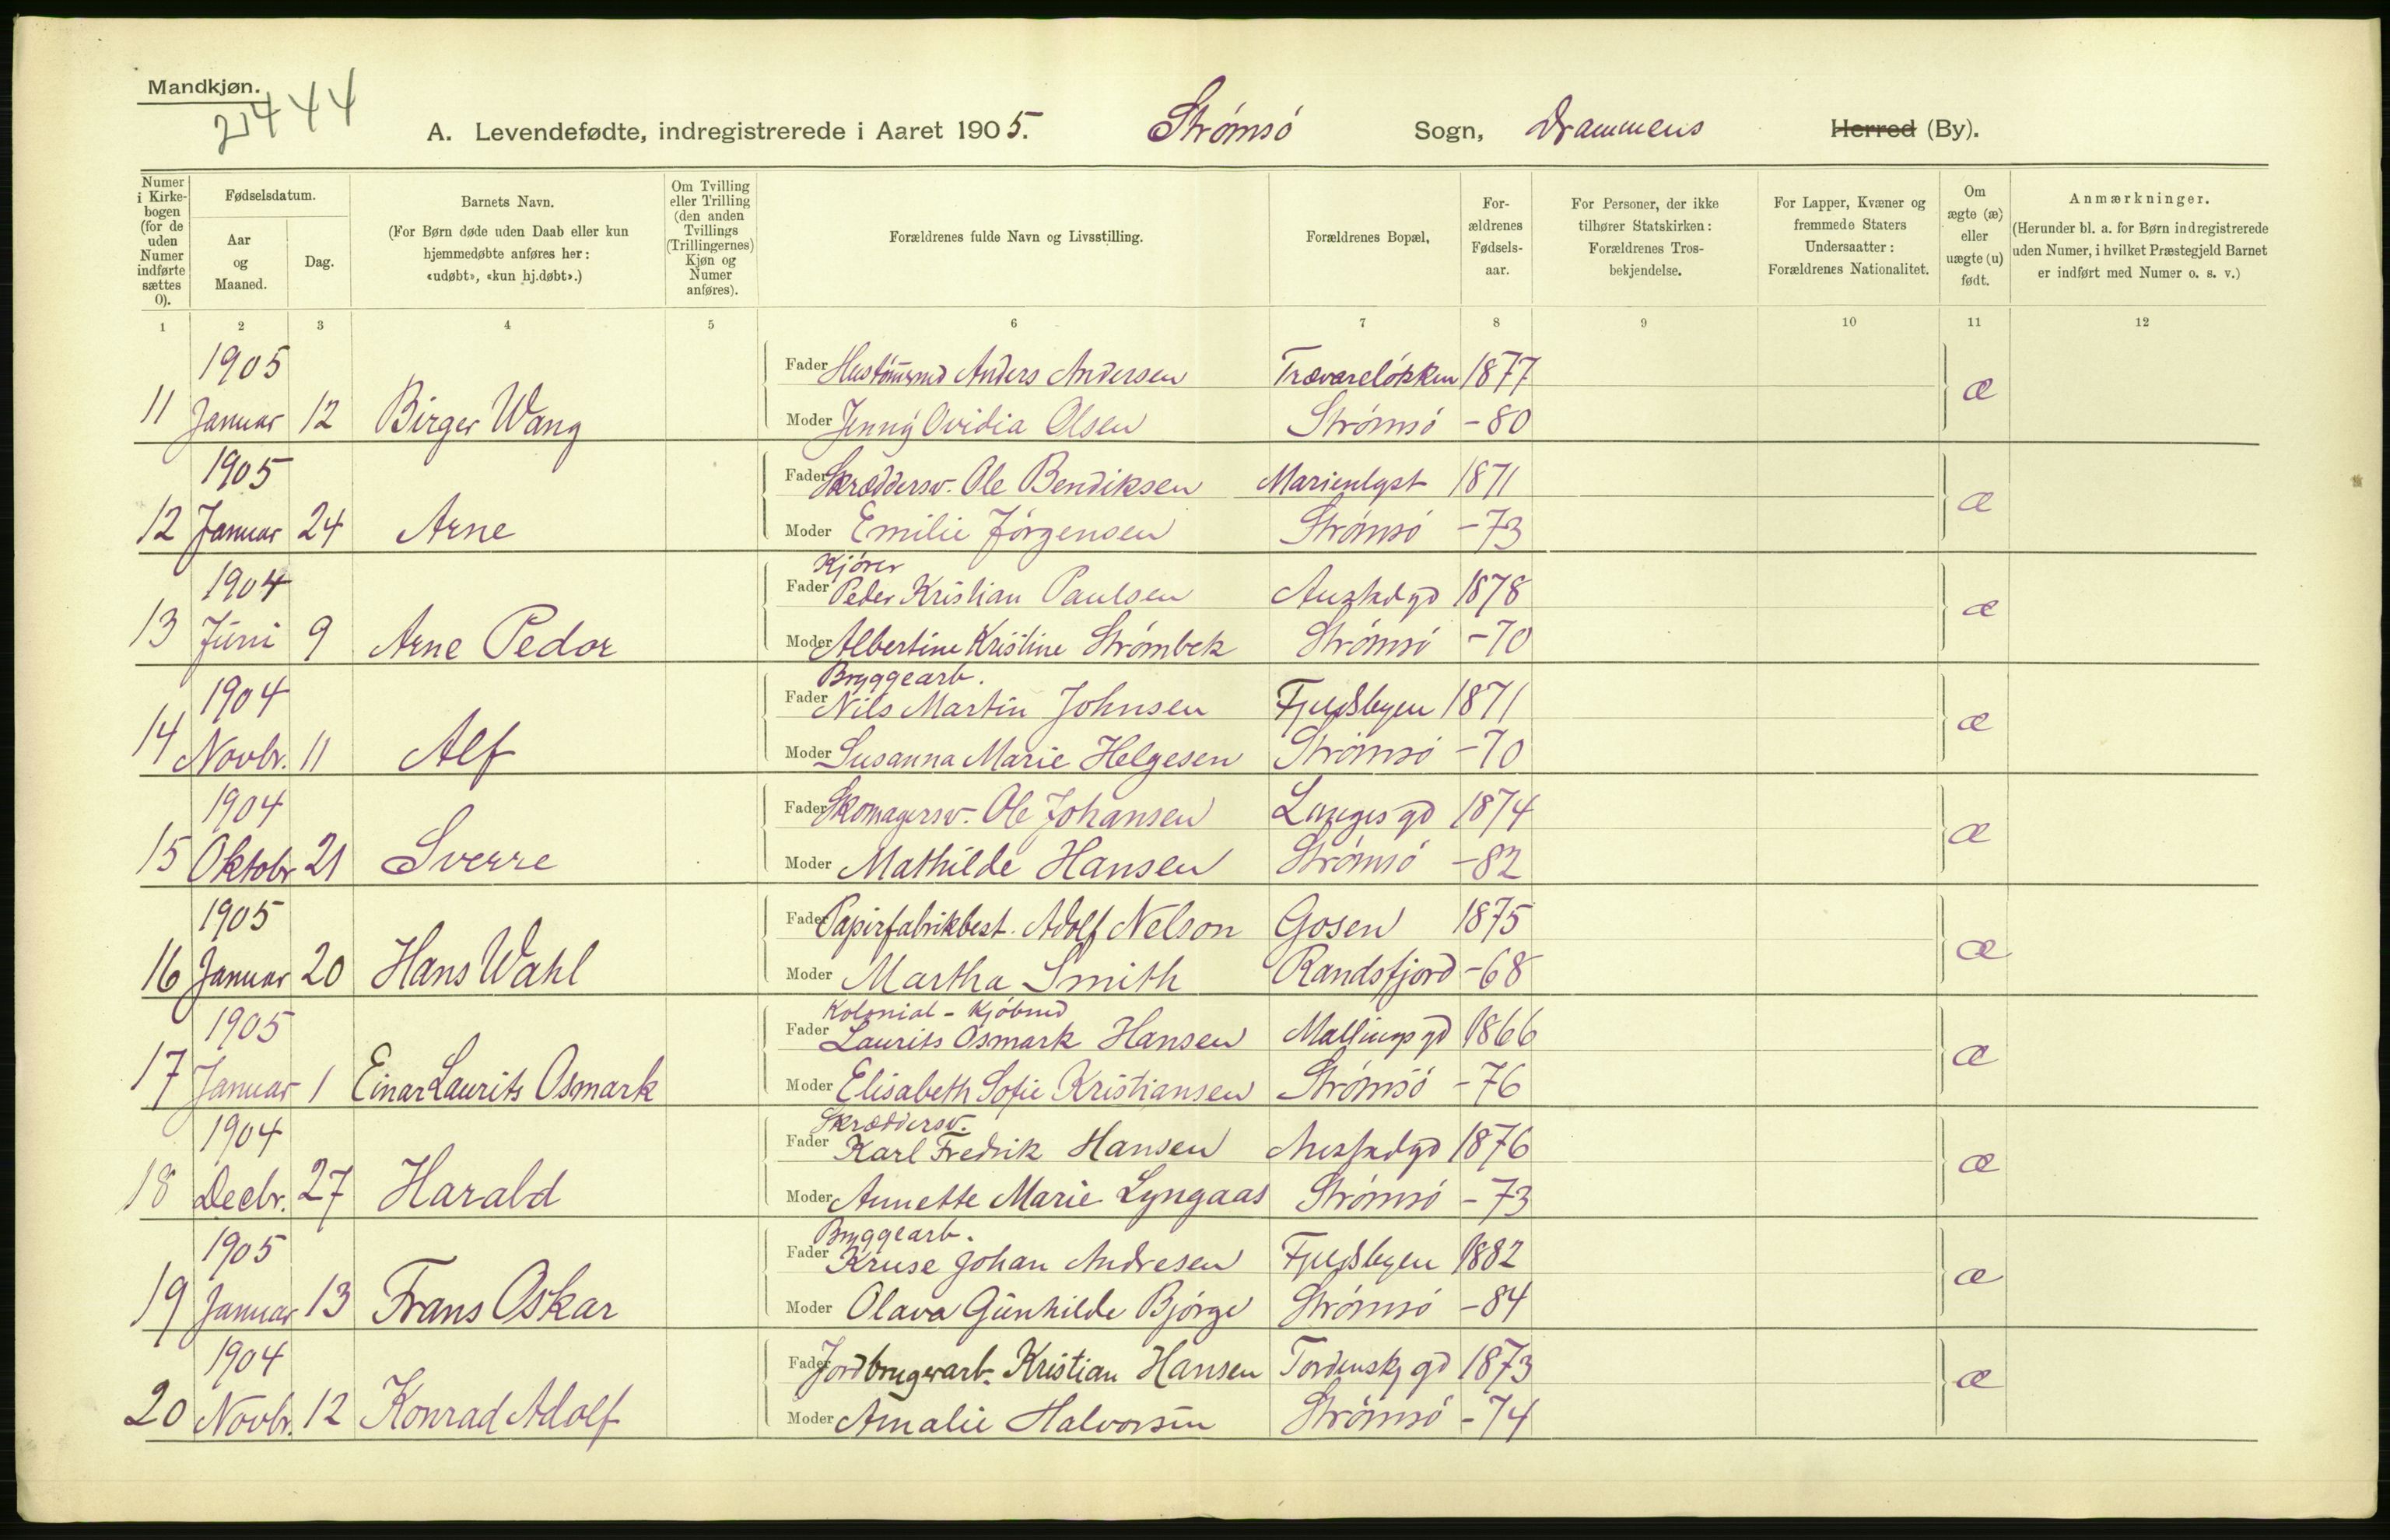 Mandkjøn.
21444
A. Levendefødte, indregistrerede i Aaret 1905. Strømsö Sogn, Drammens Herred (By).
Numer i Kirke-bogen (for de uden Numer indførte sættes 0). Fødselsdatum. Aar og Maaned. Dag. Barnets Navn. (For Børn døde uden Daab eller kun hjemmedøbte anføres her: «udøbt», «kun hj.døbt».) Om Tvilling eller Trilling (den anden Tvillings (Trillingernes) Kjøn og Numer anføres). Forældrenes fulde Navn og Livsstilling. Forældrenes Bopæl, For-ældrenes Fødsels-aar. For Personer, der ikke tilhører Statskirken: Forældrenes Tros-bekjendelse. For Lapper, Kvæner og fremmede Staters Undersaatter: Forældrenes Nationalitet. Om ægte (æ) eller uægte (u) født. Anmærkninger. (Herunder bl. a. for Børn indregistrerede uden Numer, i hvilket Præstegjeld Barnet er indført med Numer o. s. v.)
1 2 3 4 5 6 7 8 9 10 11 12
1905 Fader Anders Andersen 1877 æ
11 Januar 12 Birger Wang Moder Jenny Ovidia Olsen Strömsö -80
1905 Fader Skræddersv. Ole Bendiksen Marienlyst 1871 æ
12 Januar 24 Arne Moder Emilie Jörgensen Strömsö -73
Kjörer
1904 Fader Peder Kristian Paulsen 1878 æ
13 Juni 9 Arne Peder Moder Albertine Kristine Strömbek Strömsö -70
Bryggearb.
1904 Fader Nils Martin Johnsen Fjeldsbyen 1871 æ
14 Novbr. 11 Alf Moder Susanna Marie Helgesen Strömsö -70
1904 Fader Skomagersv. Ole Johansen Langes gd 1874 æ
15 Oktobr 21 Sverre Moder Mathilde Hansen Strömsö -82
1905 Fader Papirfabrikbest. Adolf Nelson Gosen 1875 æ
16 Januar 20 Hans Wahl Moder Martha Smith Randsfjord -68
Kolonial - Kjöbmd
1905 Fader Laurits Osmark Hansen Mallings gd 1866 æ
17 Januar 1 Einar Laurits Osmark Moder Elisabeth Sofie Kristiansen Strömsö -76
Skræddersv.
1904 Fader Karl Fredrik Hansen 1876 æ
18 Decbr. 27 Harald Moder Annette Marie Lyngaas Strömsö -73
Bryggearb.
1905 Fader Kruse Johan Andresen Fjeldsbyen 1882 æ
19 Januar 13 Frans Oskar Moder Olava Gunhilde Björge Strömsö -84
1904 Fader Jordbrugerarb. Kristian Hansen Tordenskj gd 1873 æ
20 Novbr. 12 Konrad Adolf Moder Amalie Halvorsen Strömsö -74